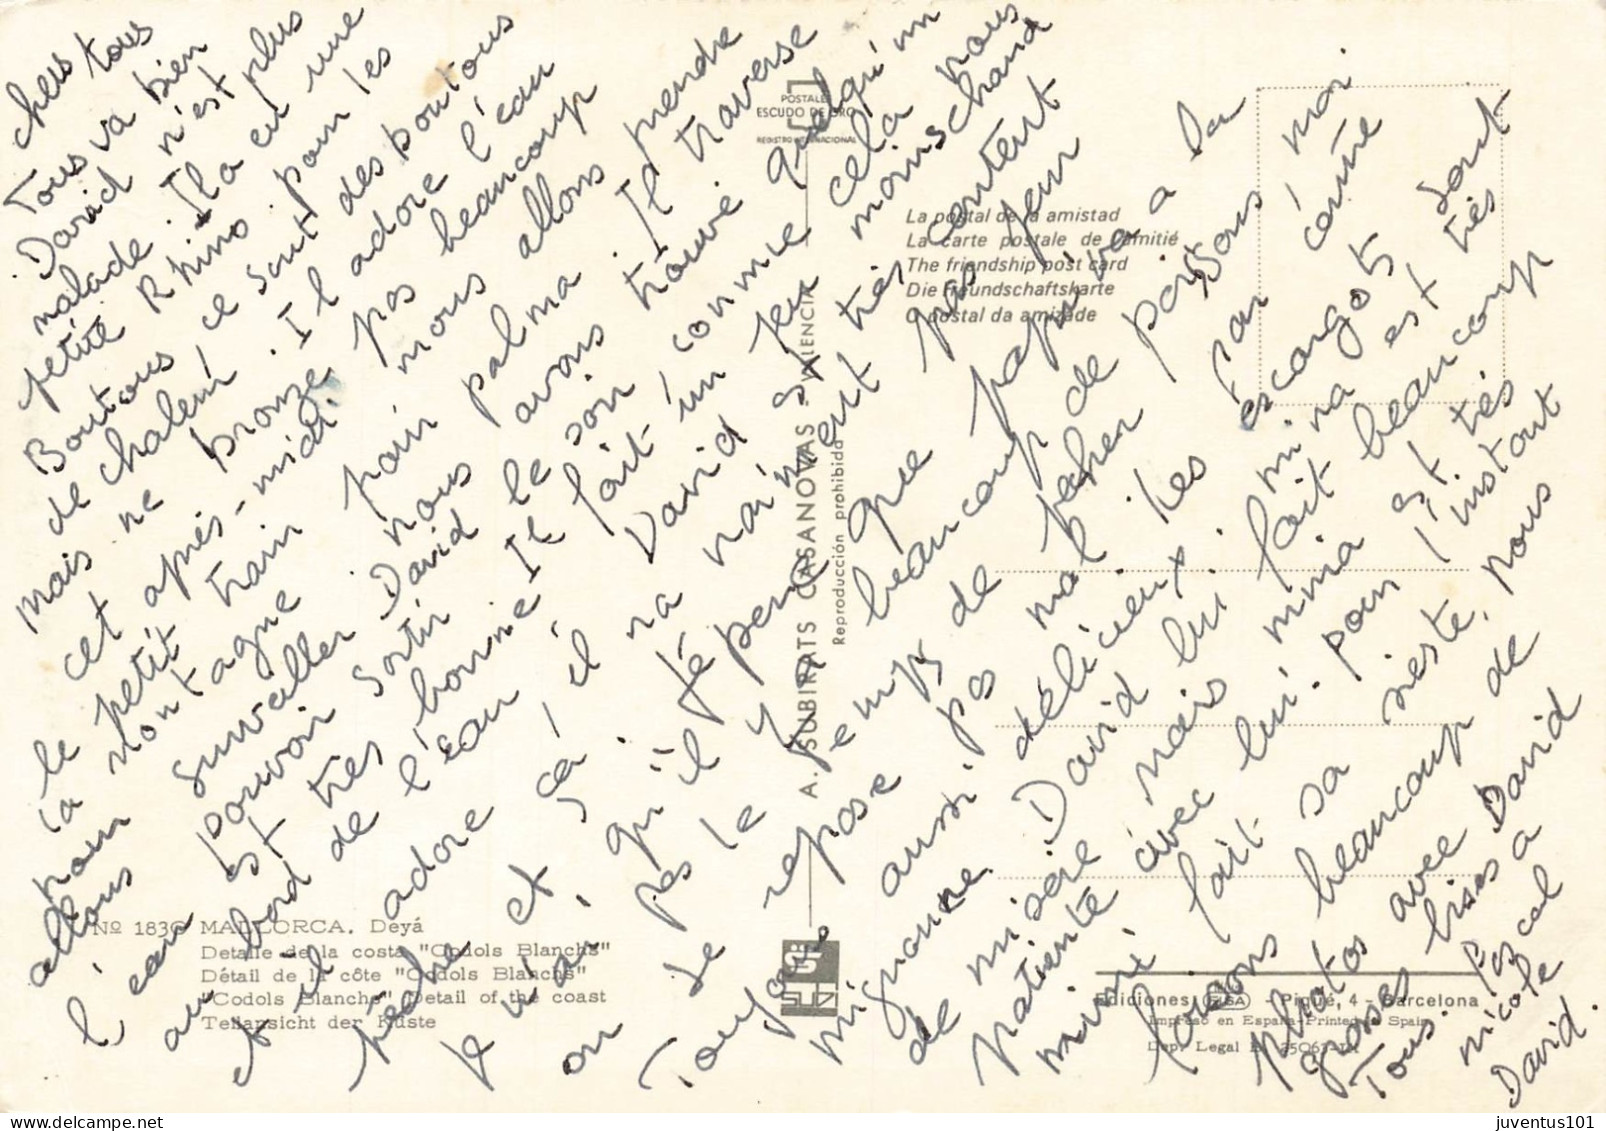 chers tous
Tous va bien
David n'est plus
malade. Il a eu une
petite Rhino pour les
Boutous, ce sont des boutous
de chaleur. Il adore l'eau
mais ne bronze pas beaucoup
cet après-midi. nous allons prendre
le petit train pour palma. Il traverse
la montagne nous avons trouvé quelqu'un
pour surveiller David le soir comme cela nous
allons pouvoir sortir Il fait un peu moins chaud
l'eau est très bonne David s'
au bord de l'eau il na maint très content
et il adore ça,
pêche et qu'il
on
pas le temps de
Je pense que papi va a la
y a beaucoup de poissons moi
Je repose pas mal. Les escargots sont
Toujours aussi délicieux. mina est très
mignonne. David lui fait beaucoup
de misère mais mina est très
patiente avec lui. pour l'instant
mimi fait sa sieste, nous
ferons beaucoup de
photos avec David
grosses bises a
Tous. Pascal
nicole
David.
POSTALES
ESCUDO DE ORO
REGISTRO INTERNACIONAL
La postal de la amistad
La carte postale de l'amitié
The friendship post card
Die Freundschaftskarte
O postal da amizade
A. SUBIRATS CASANOVAS - VALENCIA
Reproducción prohibida
Nº 1836 MALLORCA. Deyá
Detalle de la costa "Codols Blanchs"
Détail de la côte "Codols Blanchs"
"Codols Blanchs" Detail of the coast
Teilansicht der Küste
Ediciones FISA - Piqué, 4 - Barcelona
Impreso en España-Printed in Spain
Dep. Legal B.
juventus101